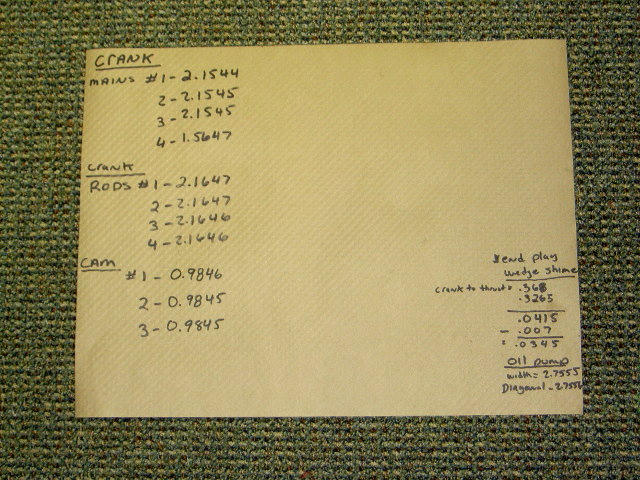 CRANK
MAINS #1-2.1544
2-2.1545
3-2.1545
4-1.5647
CRANK
RODS #1-2.1647
2-2.1647
3-2.1646
4-2.1646
CAM
#1-0.9846
2-0.9845
3-0.9845
end play
wedge shims
crank to thrust = .368
.3265
.0415
- .007
= .0345
Oil pump
width = 2.7555
Diagonal - 2.7556